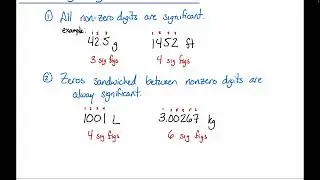 ① All non-zero digits are significant.
example:
425 g 1452 ft
3 sig figs 4 sig figs
② Zeros sandwiched between nonzero digits are
alway significant.
1001 L 3.00267 kg
4 sig figs 6 sig figs